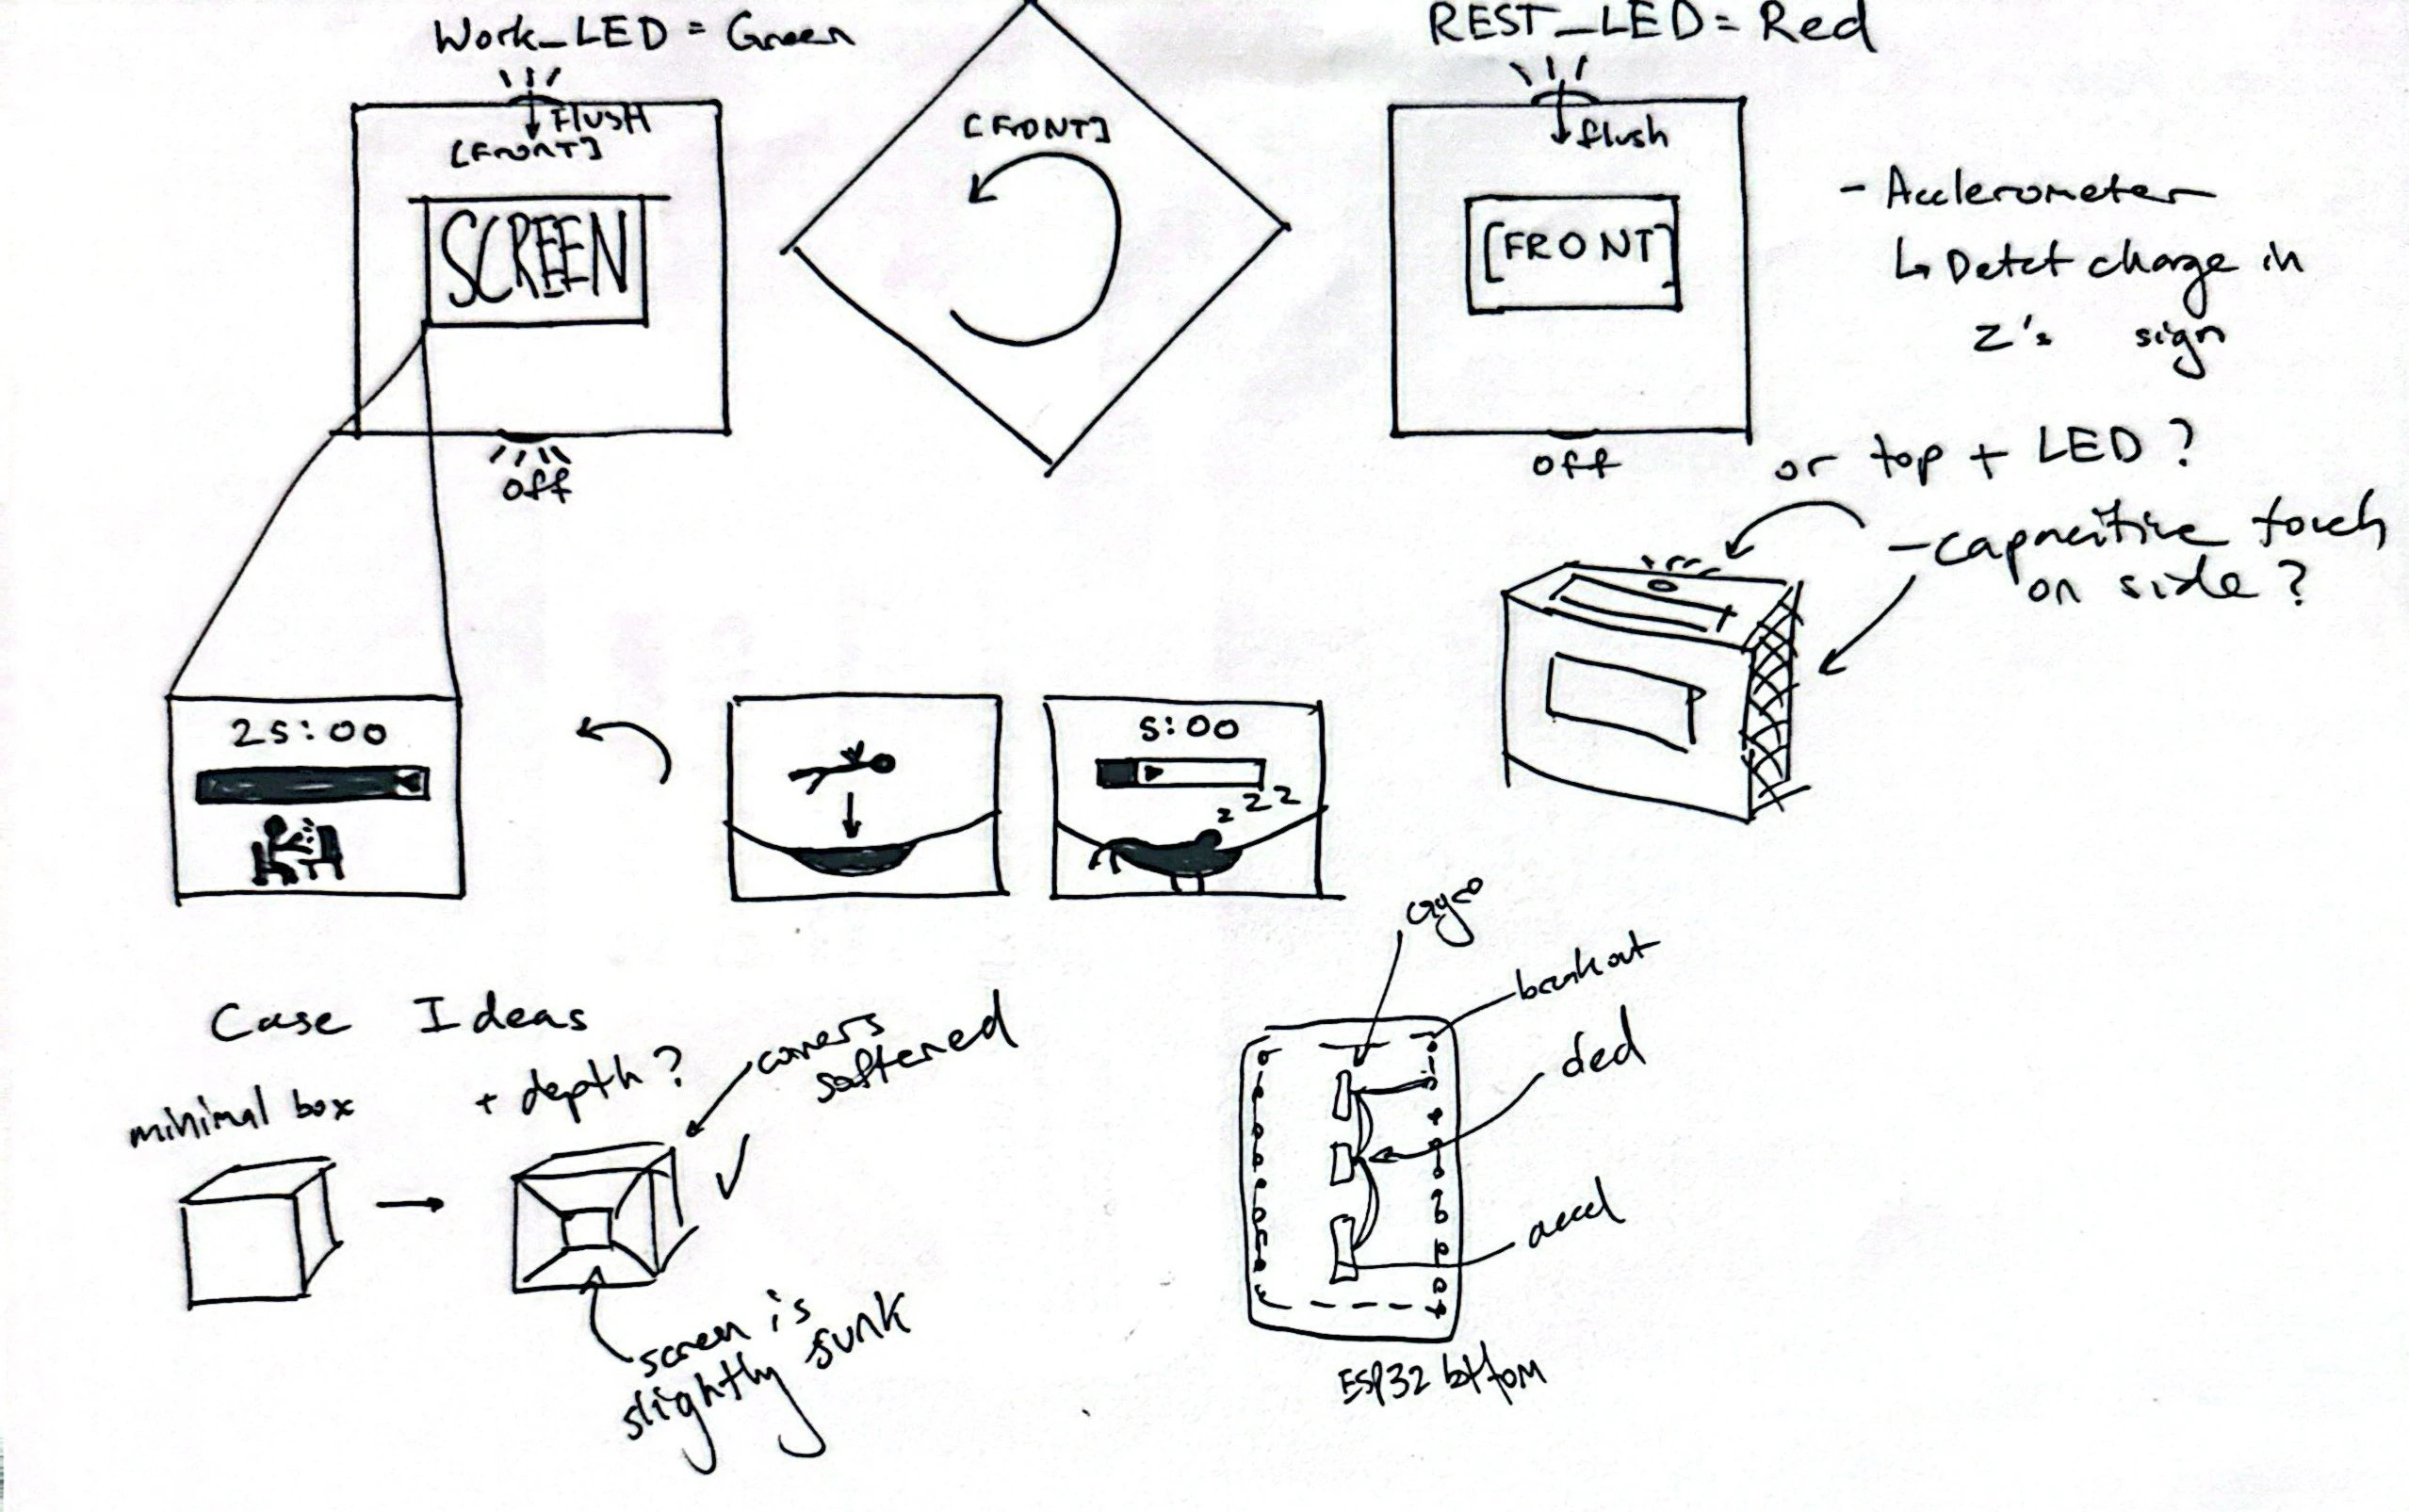 Work_LED = Green
FLUSH
[FRONT]
SCREEN
off
[FRONT]
REST_LED = Red
flush
[FRONT]
off
- Acclerometer
↳ Detct change in
z's sign
or top + LED?
- capacitive touch
on side?
25:00
5:00
z z z
Case Ideas
minimal box
+ depth?
corners
softened
screen is
slightly sunk
gyro
breakout
accel
ESP32 bttom